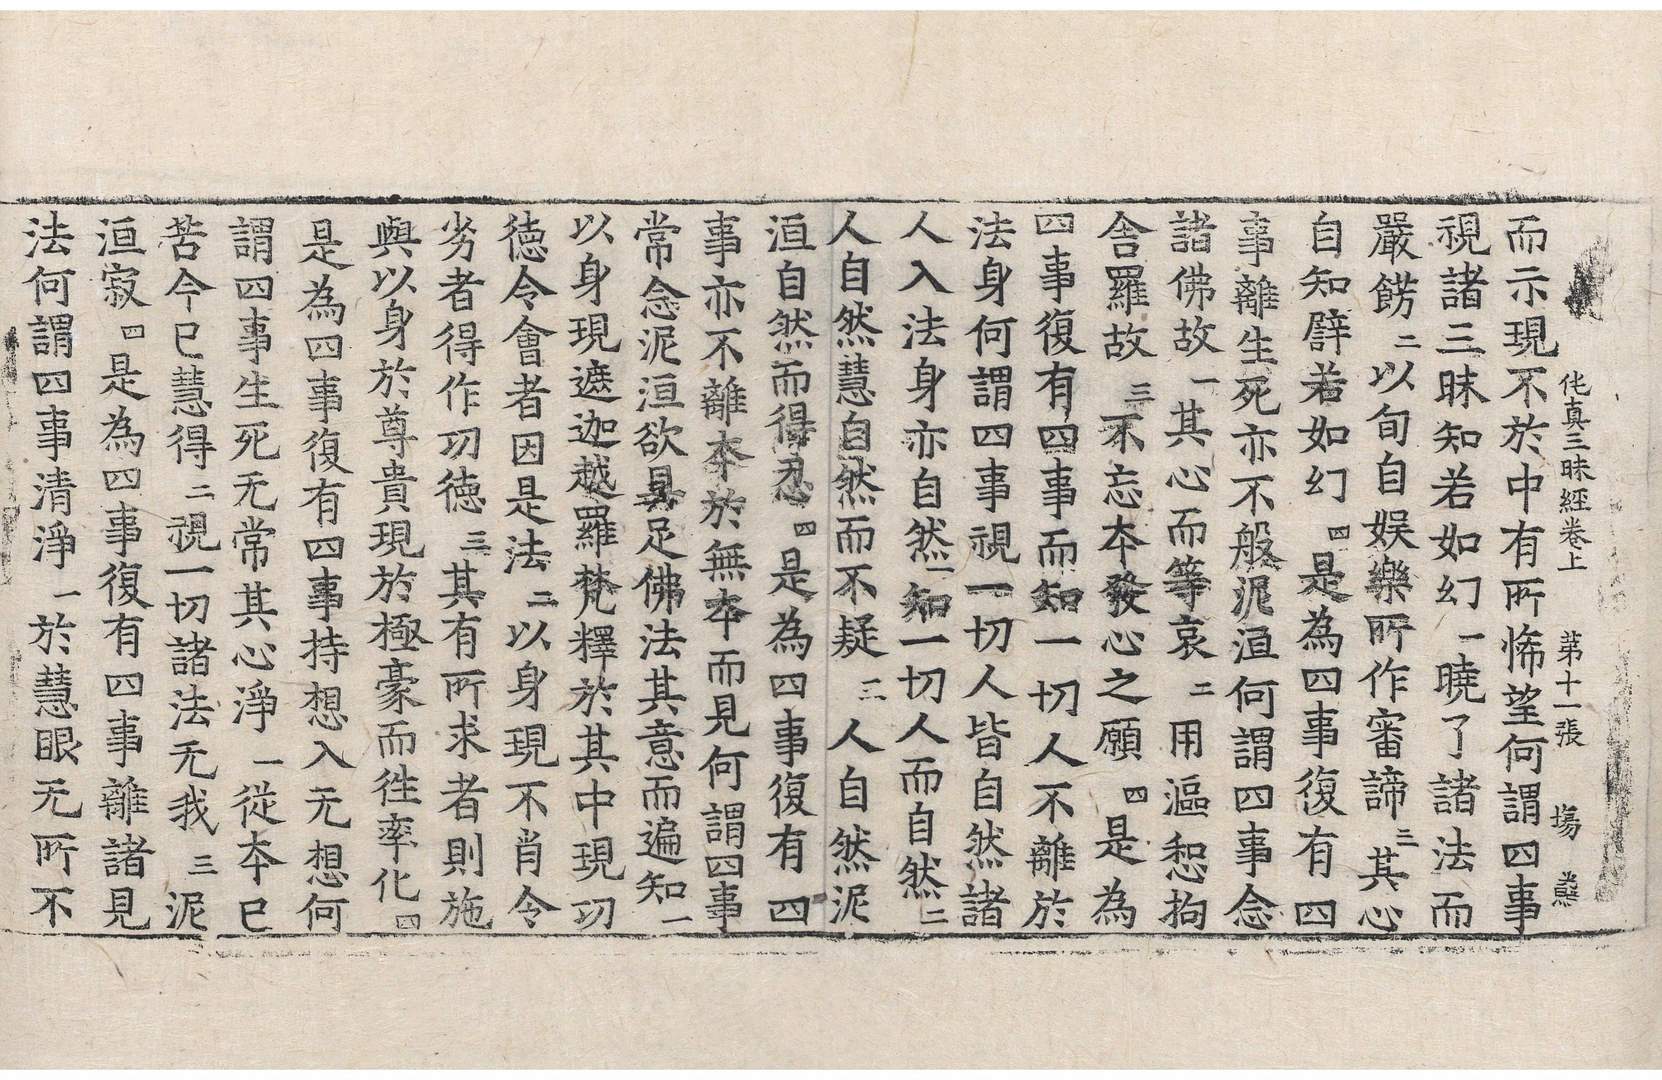 伅真三昧經卷上　第十一張　場
而示現不於中有所悕望何謂四事
視諸三昧知若如幻一曉了諸法而
嚴餝二以旬自娱樂所作審諦三其心
自知譬若如幻四是為四事復有四
事離生死亦不般泥洹何謂四事念
諸佛故一其心而等哀二用漚惒拘
舍羅故三不忘本發心之願四是為
四事復有四事而知一切人不離於
法身何謂四事視一切人皆自然諸
人入法身亦自然一知一切人而自然二
人自然慧自然而不疑三人自然泥
洹自然而得忍四是為四事復有四
事亦不離本於無本而見何謂四事
常念泥洹欲具足佛法其意而遍知一
以身現遮迦越羅梵釋於其中現功
德令會者因是法二以身現不肖令
劣者得作功德三其有所求者則施
與以身於尊貴現於極豪而徃率化四
是為四事復有四事持想入无想何
謂四事生死无常其心淨一從本已
苦今已慧得二視一切諸法无我三泥
洹寂四是為四事復有四事離諸見
法何謂四事清淨一於慧眼无所不